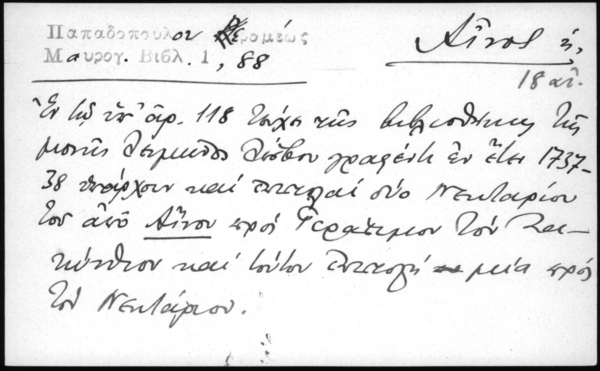 Παπαδοπούλου Κεραμέως
Μαυρογ. Βιβλ. 1, 88
Αἶνος
18 αἰ.
Ἐν τῷ ὑπ' ἀρ. 118 τεύχει τῆς βιβλιοθήκης τῆς
μονῆς Λειμῶνος Λέσβου γραφέντι ἐν ἔτει 1737-
38 ὑπάρχουν καὶ ἐπιστολαὶ δύο Νεκταρίου
τοῦ ἀπὸ Αἴνου πρὸς Γεράσιμον τὸν Ζα-
κύνθιον καὶ τούτου ἐπιστολὴ μία πρὸς
τὸν Νεκτάριον.